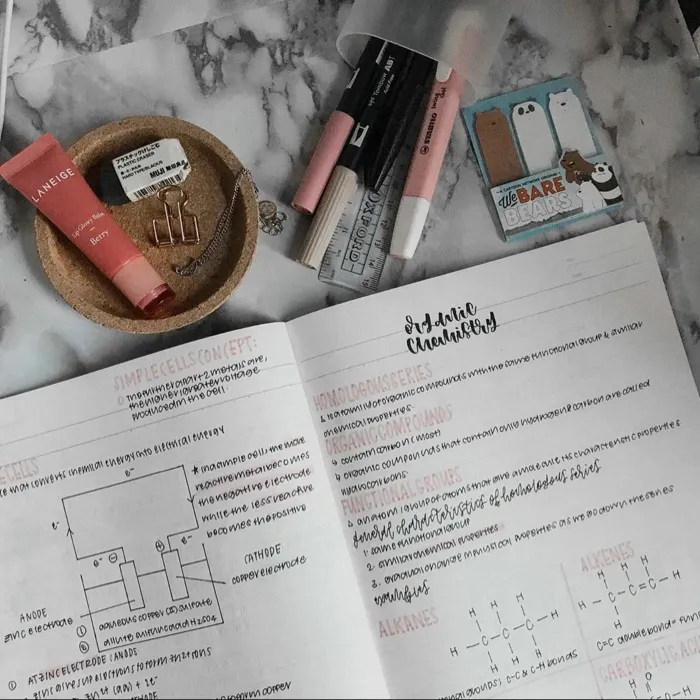 LANEIGE
Lip Glowy Balm
Berry
プラスチックけしごむ
PLASTIC ERASER
HARD TYPE/BLACK
MUJI 無印良品
ABT
STABILO
swing cool
OXFORD
A CARTOON NETWORK ORIGINAL
We BARE
BEARS
SIMPLE CELLS CONCEPT:
the further apart 2 metals are,
the higher/greater voltage
produced in the cell.
E CELLS
that converts chemical energy into electrical energy
e⁻
e⁻
e⁻
e⁻
⊖
⊕
★ in a simple cell, the more
reactive metal becomes
the negative electrode
while the less reactive
becomes the positive
CATHODE
copper electrode
ANODE
zinc electrode
① aqueous copper (II) sulfate
② dilute sulfuric acid H2SO4
① AT ZINC ELECTRODE / ANODE
zinc gives up electrons to form zn2+ ions
organic
chemistry
HOMOLOGOUS SERIES
↳ is a family of organic compounds with the same functional group & similar
chemical properties.
ORGANIC COMPOUNDS
↳ contain carbon (most)
↳ organic compounds that contain only hydrogen & carbon are called
hydrocarbons.
FUNCTIONAL GROUPS
↳ an atom / group of atoms that give a molecule its characteristic properties
general characteristics of homologous series
1. same functional group
2. similar chemical properties
3. gradual change in physical properties as we go down the series
examples
ALKANES
H H H
H - C - C - C - H
H H H
C-C & C-H bonds
ALKENES
H H H
H - C - C = C - H
H
C=C double bond = fun
CARBOXYLIC ACI
H O